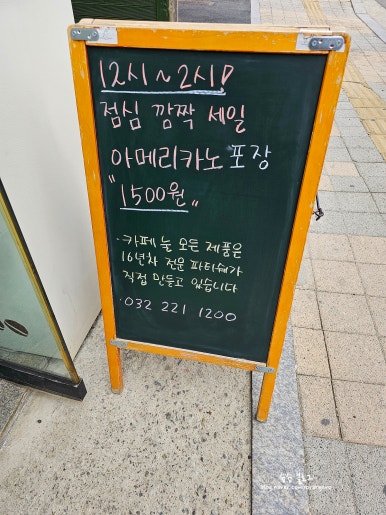 12시~2시!
점심 깜짝 세일
아메리카노 포장
"1500원"
·카페 늘 모든 제품은
16년차 전문 파티쉐가
직접 만들고 있습니다
·032 221 1200